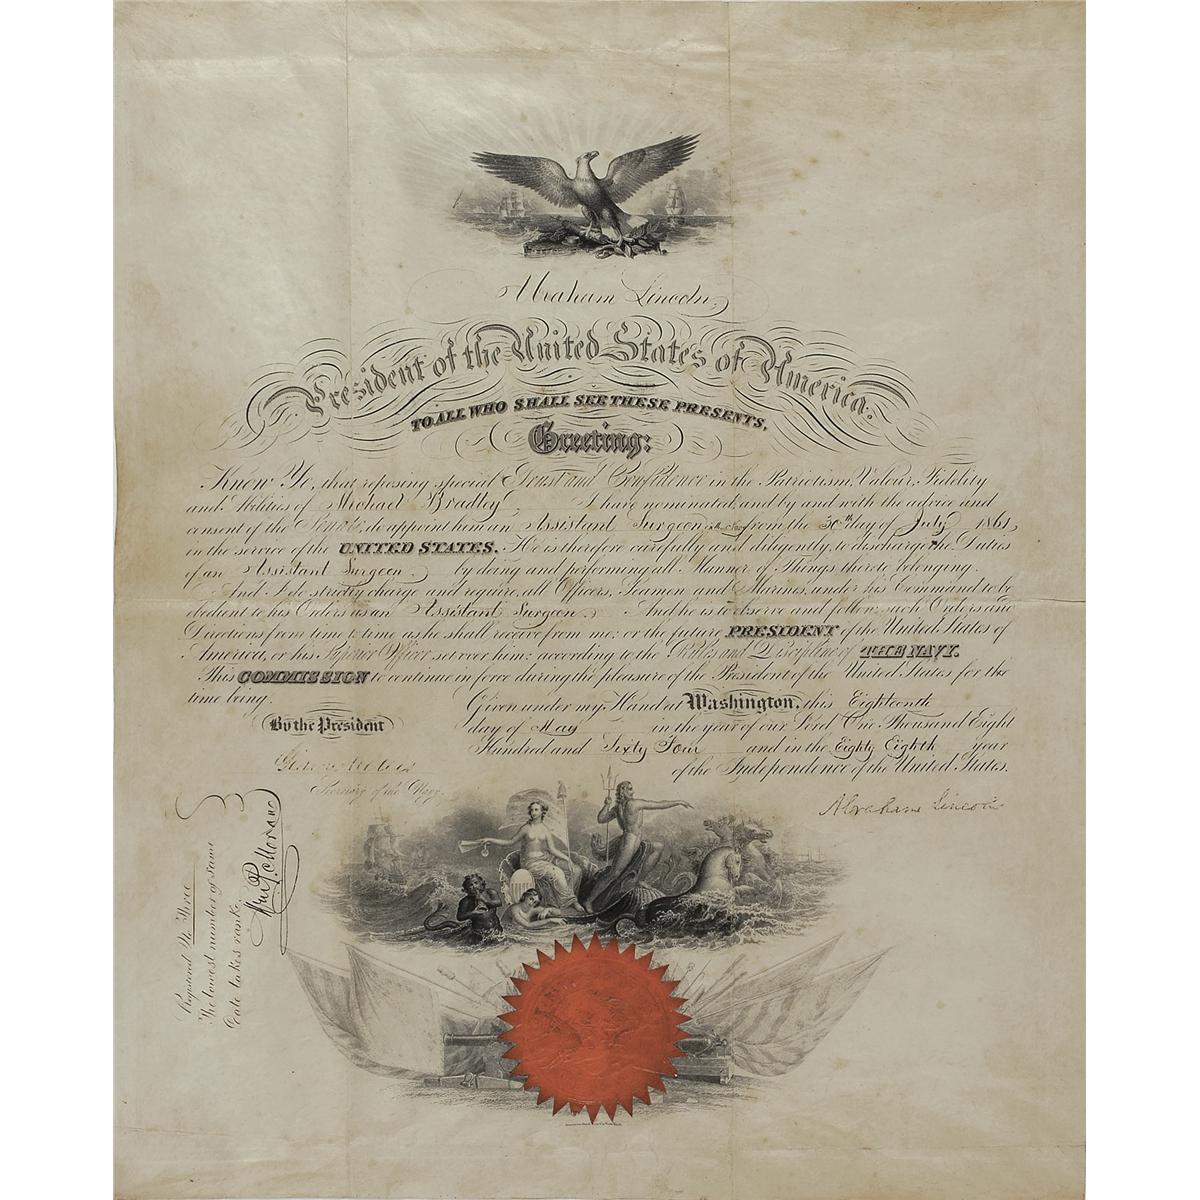 Abraham Lincoln,
President of the United States of America.
TO ALL WHO SHALL SEE THESE PRESENTS,
Greeting:
Know Ye, that reposing special Trust and Confidence in the Patriotism, Valour, Fidelity
and Abilities of Michael Bradley I have nominated and by and with the advice and
consent of the Senate, do appoint him an Assistant Surgeon in the Navy from the 30th day of July 1861,
in the service of the UNITED STATES. He is therefore carefully and diligently, to discharge the Duties
of an Assistant Surgeon by doing and performing all Manner of Things thereto belonging.
And I do strictly charge and require, all Officers, Seamen and Marines, under his Command to be
obedient to his Orders as an Assistant Surgeon. And he is to observe and follow such Orders and
Directions from time to time as he shall receive from me; or the future PRESIDENT of the United States of
America, or his Superior Officer set over him; according to the Rules and Discipline of THE NAVY.
This COMMISSION to continue in force during the pleasure of the President of the United States for the
time being.
Given under my Hand at Washington, this Eighteenth
By the President
day of May in the year of our Lord One Thousand Eight
Hundred and Sixty Four and in the Eighty Eighth year
of the Independence of the United States.
Gideon Welles
Secretary of the Navy
Abraham Lincoln
Registered No. Three
The lowest number of same
Date takes rank.
Wm P. Moran